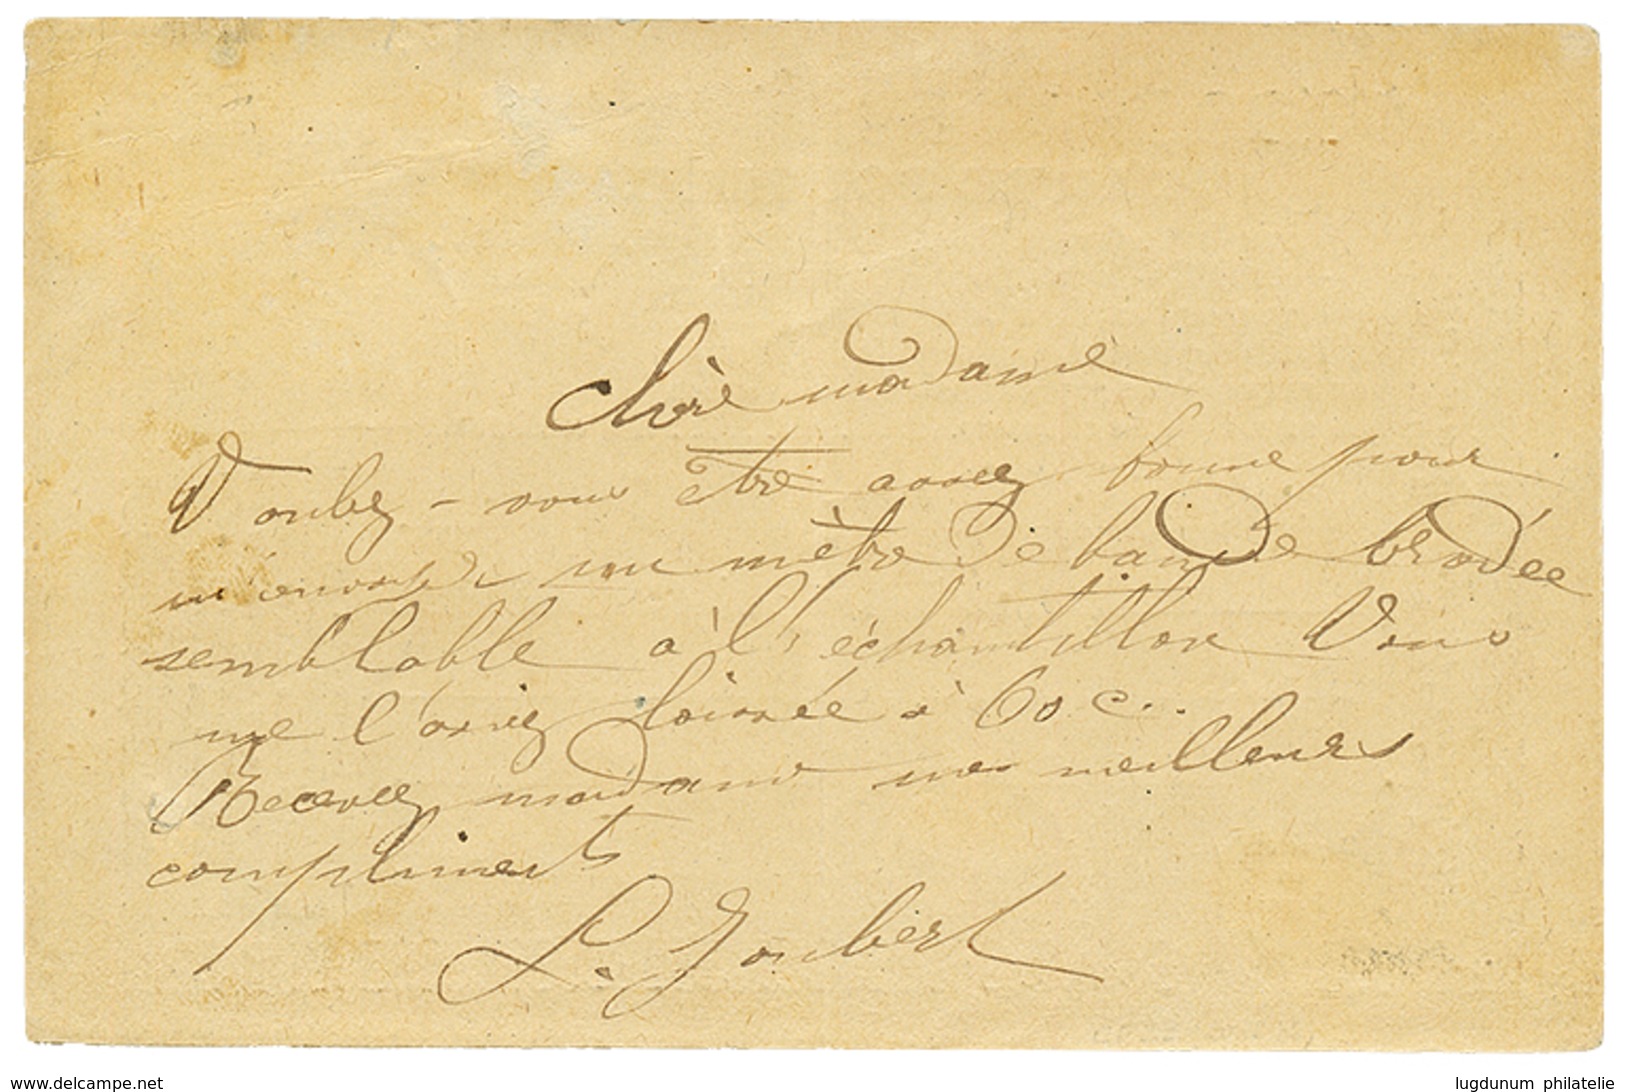 Chère madame
Voulez-vous être assez bonne pour
m'envoyer un mètre de bande brodée
semblable à l'échantillon Vous
me l'aviez laissée à 60 c..
Recevez madame mes meilleurs
compliments
L. Joubert
www.delcampe.net
lugdunum philatelie